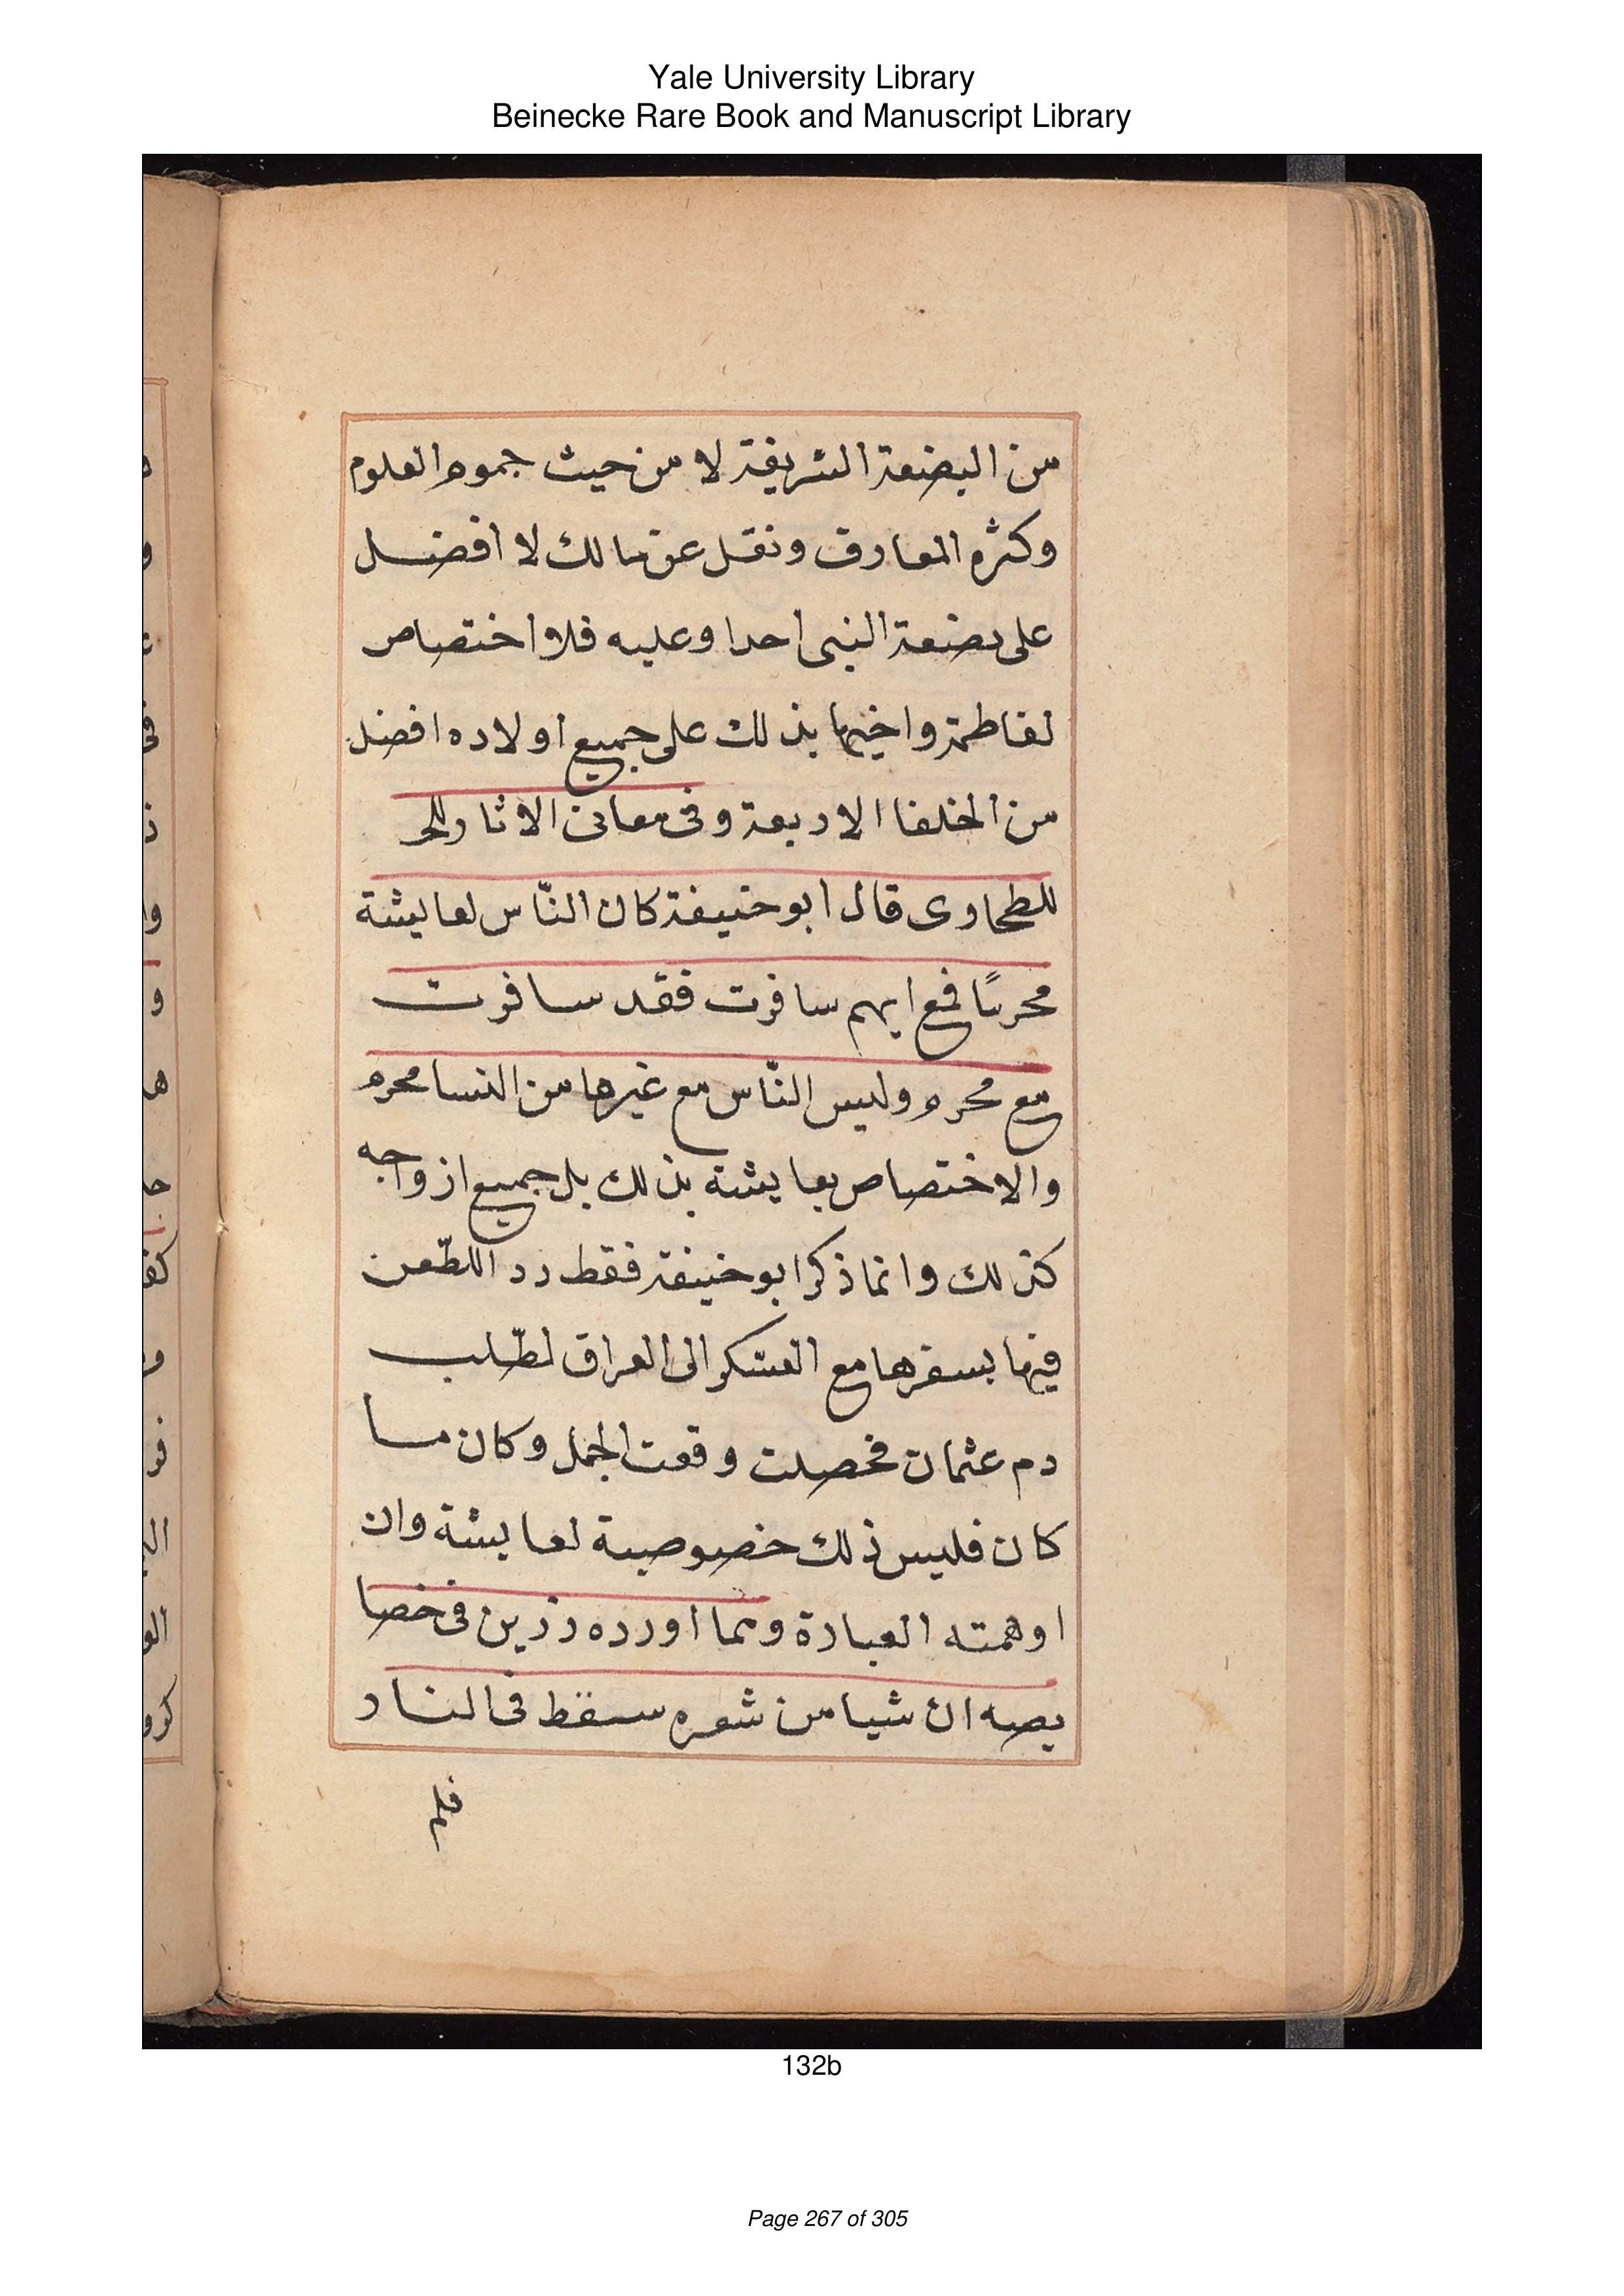 Yale University Library
Beinecke Rare Book and Manuscript Library
من البضعة الشريفة لا من حيث جموم العلوم
وكثره المعارف ونقل عن مالك لا افضل
على بضعة النبى احدا وعليه فلا اختصاص
لفاطمة واخيها بذلك على جميع اولاده افضل
من الخلفا الاربعة وفى معانى الاثار
للطحاوى قال ابو حنيفة كان النّاس لعايشة
محرمًا فمع ايهم سافرت فقد سافرت
مع محرم وليس النّاس مع غيرها من النسا محرم
والاختصاص بعايشة بذلك بل جميع ازواجه
كذلك وانما ذكر ابو حنيفة فقط رد اللطّعن
فيها بسفرها مع العسكر الى العراق لطّلب
دم عثمان فحصلت وقعت الجمل وكان ما
كان فليس ذلك خصوصية لعايشة وان
اوهمته العبارة ومما اورده رزين فى خصا
يصه ان شيا من شعره سقط فى النار
فلم
132b
Page 267 of 305